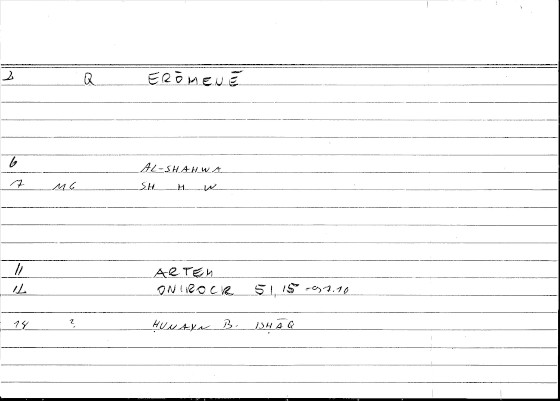 2 Q ERŌMENĒ
6 AL-SHAHWA
7 MG SH H W
11 ARTEM
12 ONIROCR 51,15 -
14 ? ḤUNAYN B. ISḤĀQ